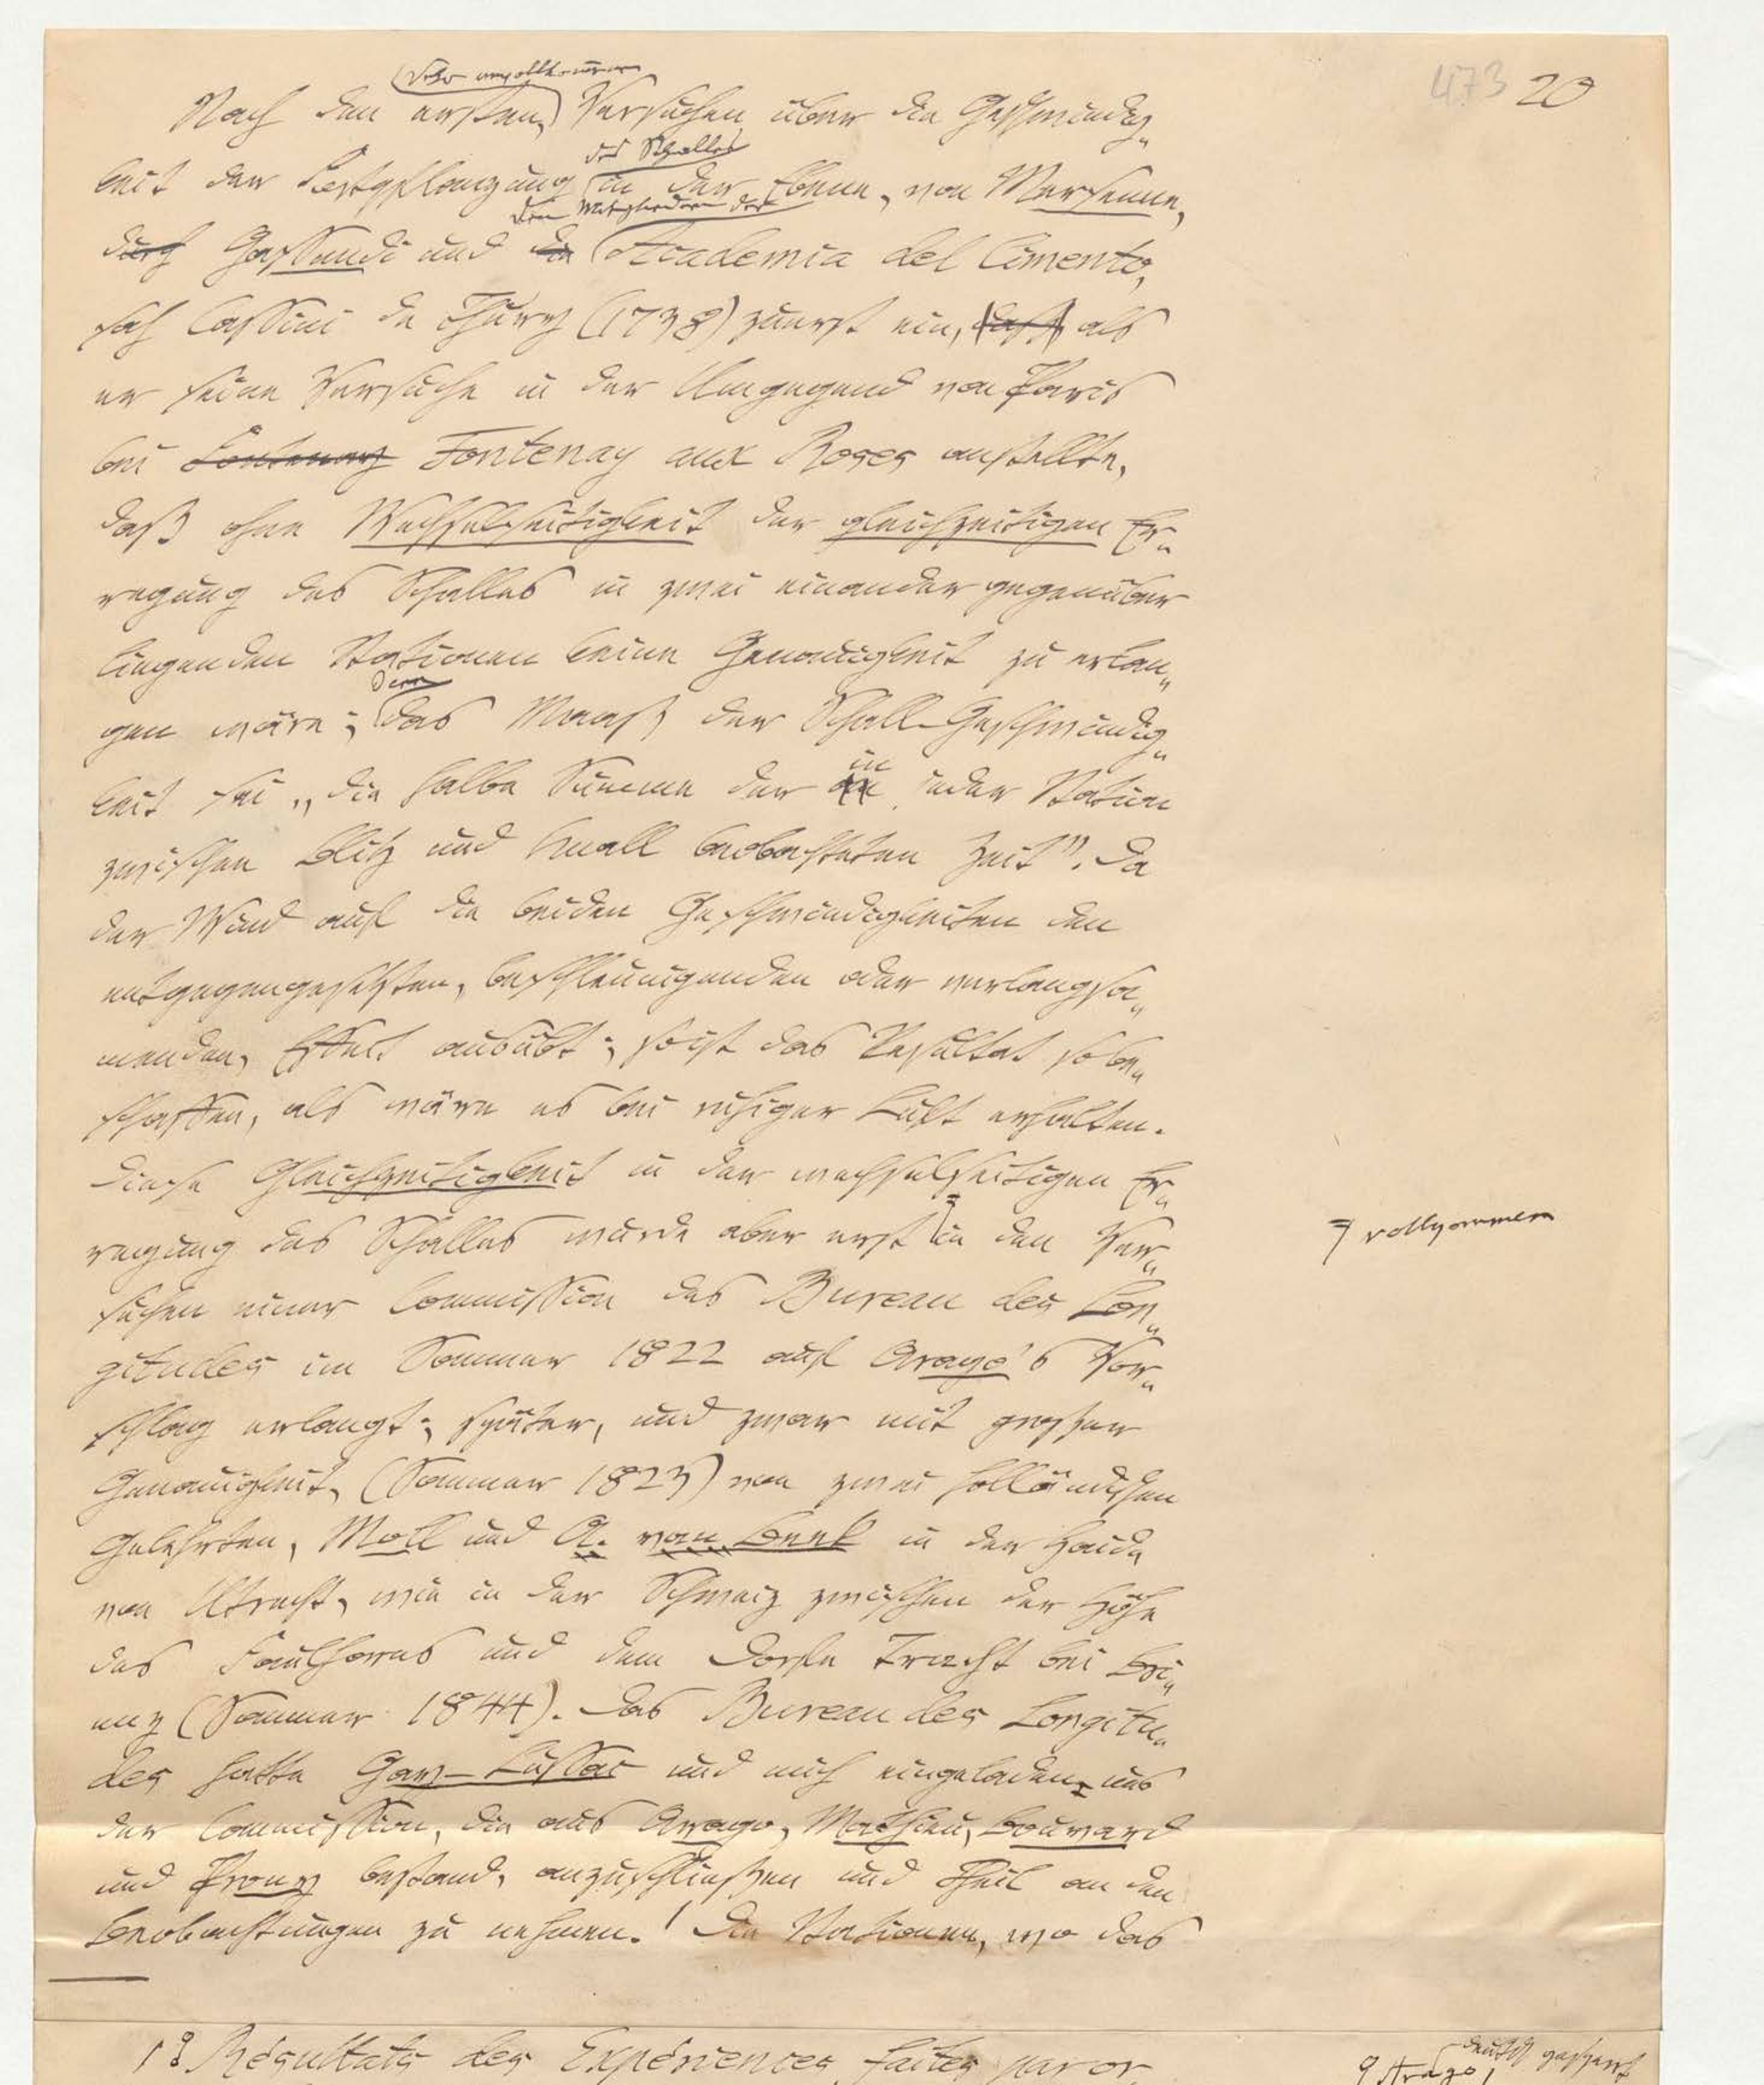 473 20
(sehr unvollkommen
Nach den ersten) Versuchen über die Geschwindig„
des Schalles
keit der Fortpflanzung in der Ebene, von Mersenne,
den Mitgliedern der
durch Gassendi und die Academia del Cimento,
sah Cassini de Thury (1738) zuerst ein, daß, als
er seine Versuche in der Umgegend von Paris
bei Fontenay Fontenay aux Roses anstellte,
daß ohne Wechselseitigkeit der gleichzeitigen Er„
regung des Schalles in zwei einander gegenüber
liegenden Stationen keine Genauigkeit zu erlan„
denn
gen wäre; das Maaß der Schall-Geschwindig„
in
keit sei „die halbe Summe der an jeder Station
zwischen Blitz und Knall beobachteten Zeit”. Da
der Wind auf die beiden Geschwindigkeiten den
entgegengesetzten, beschleunigenden oder verlangsa„
menden, Effect ausübt; so ist das Resultat so be„
schaffen, als wäre es bei ruhiger Luft erhalten.
Diese Gleichzeitigkeit in der wechselseitigen Er„
regung des Schalles wurde aber erst in den Ver„
vollkommen
suchen einer Commission des Bureau des Lon„
gitudes im Sommer 1822 auf Arago's Vor„
schlag erlangt; später, und zwar mit großer
Genauigkeit, (Sommer 1823) von zwei holländischen
Gelehrten, Moll und A. van Beek in der Haide
von Utrecht, wie in der Schweiz zwischen der Höhe
des Faulhorns und dem Dorfe Tracht bei Bri„
enz (Sommer 1844). Das Bureau des Longitu„
des hatte Gay-Lussac und mich eingeladen, uns
der Commission, die aus Arago, Mathieu, Bouvard
und Prony bestand, anzuschließen und Theil an den
Beobachtungen zu nehmen. Die Stationen, wo das
Résultats des Expériences faites par or
deutsch gesperrt
Arago,